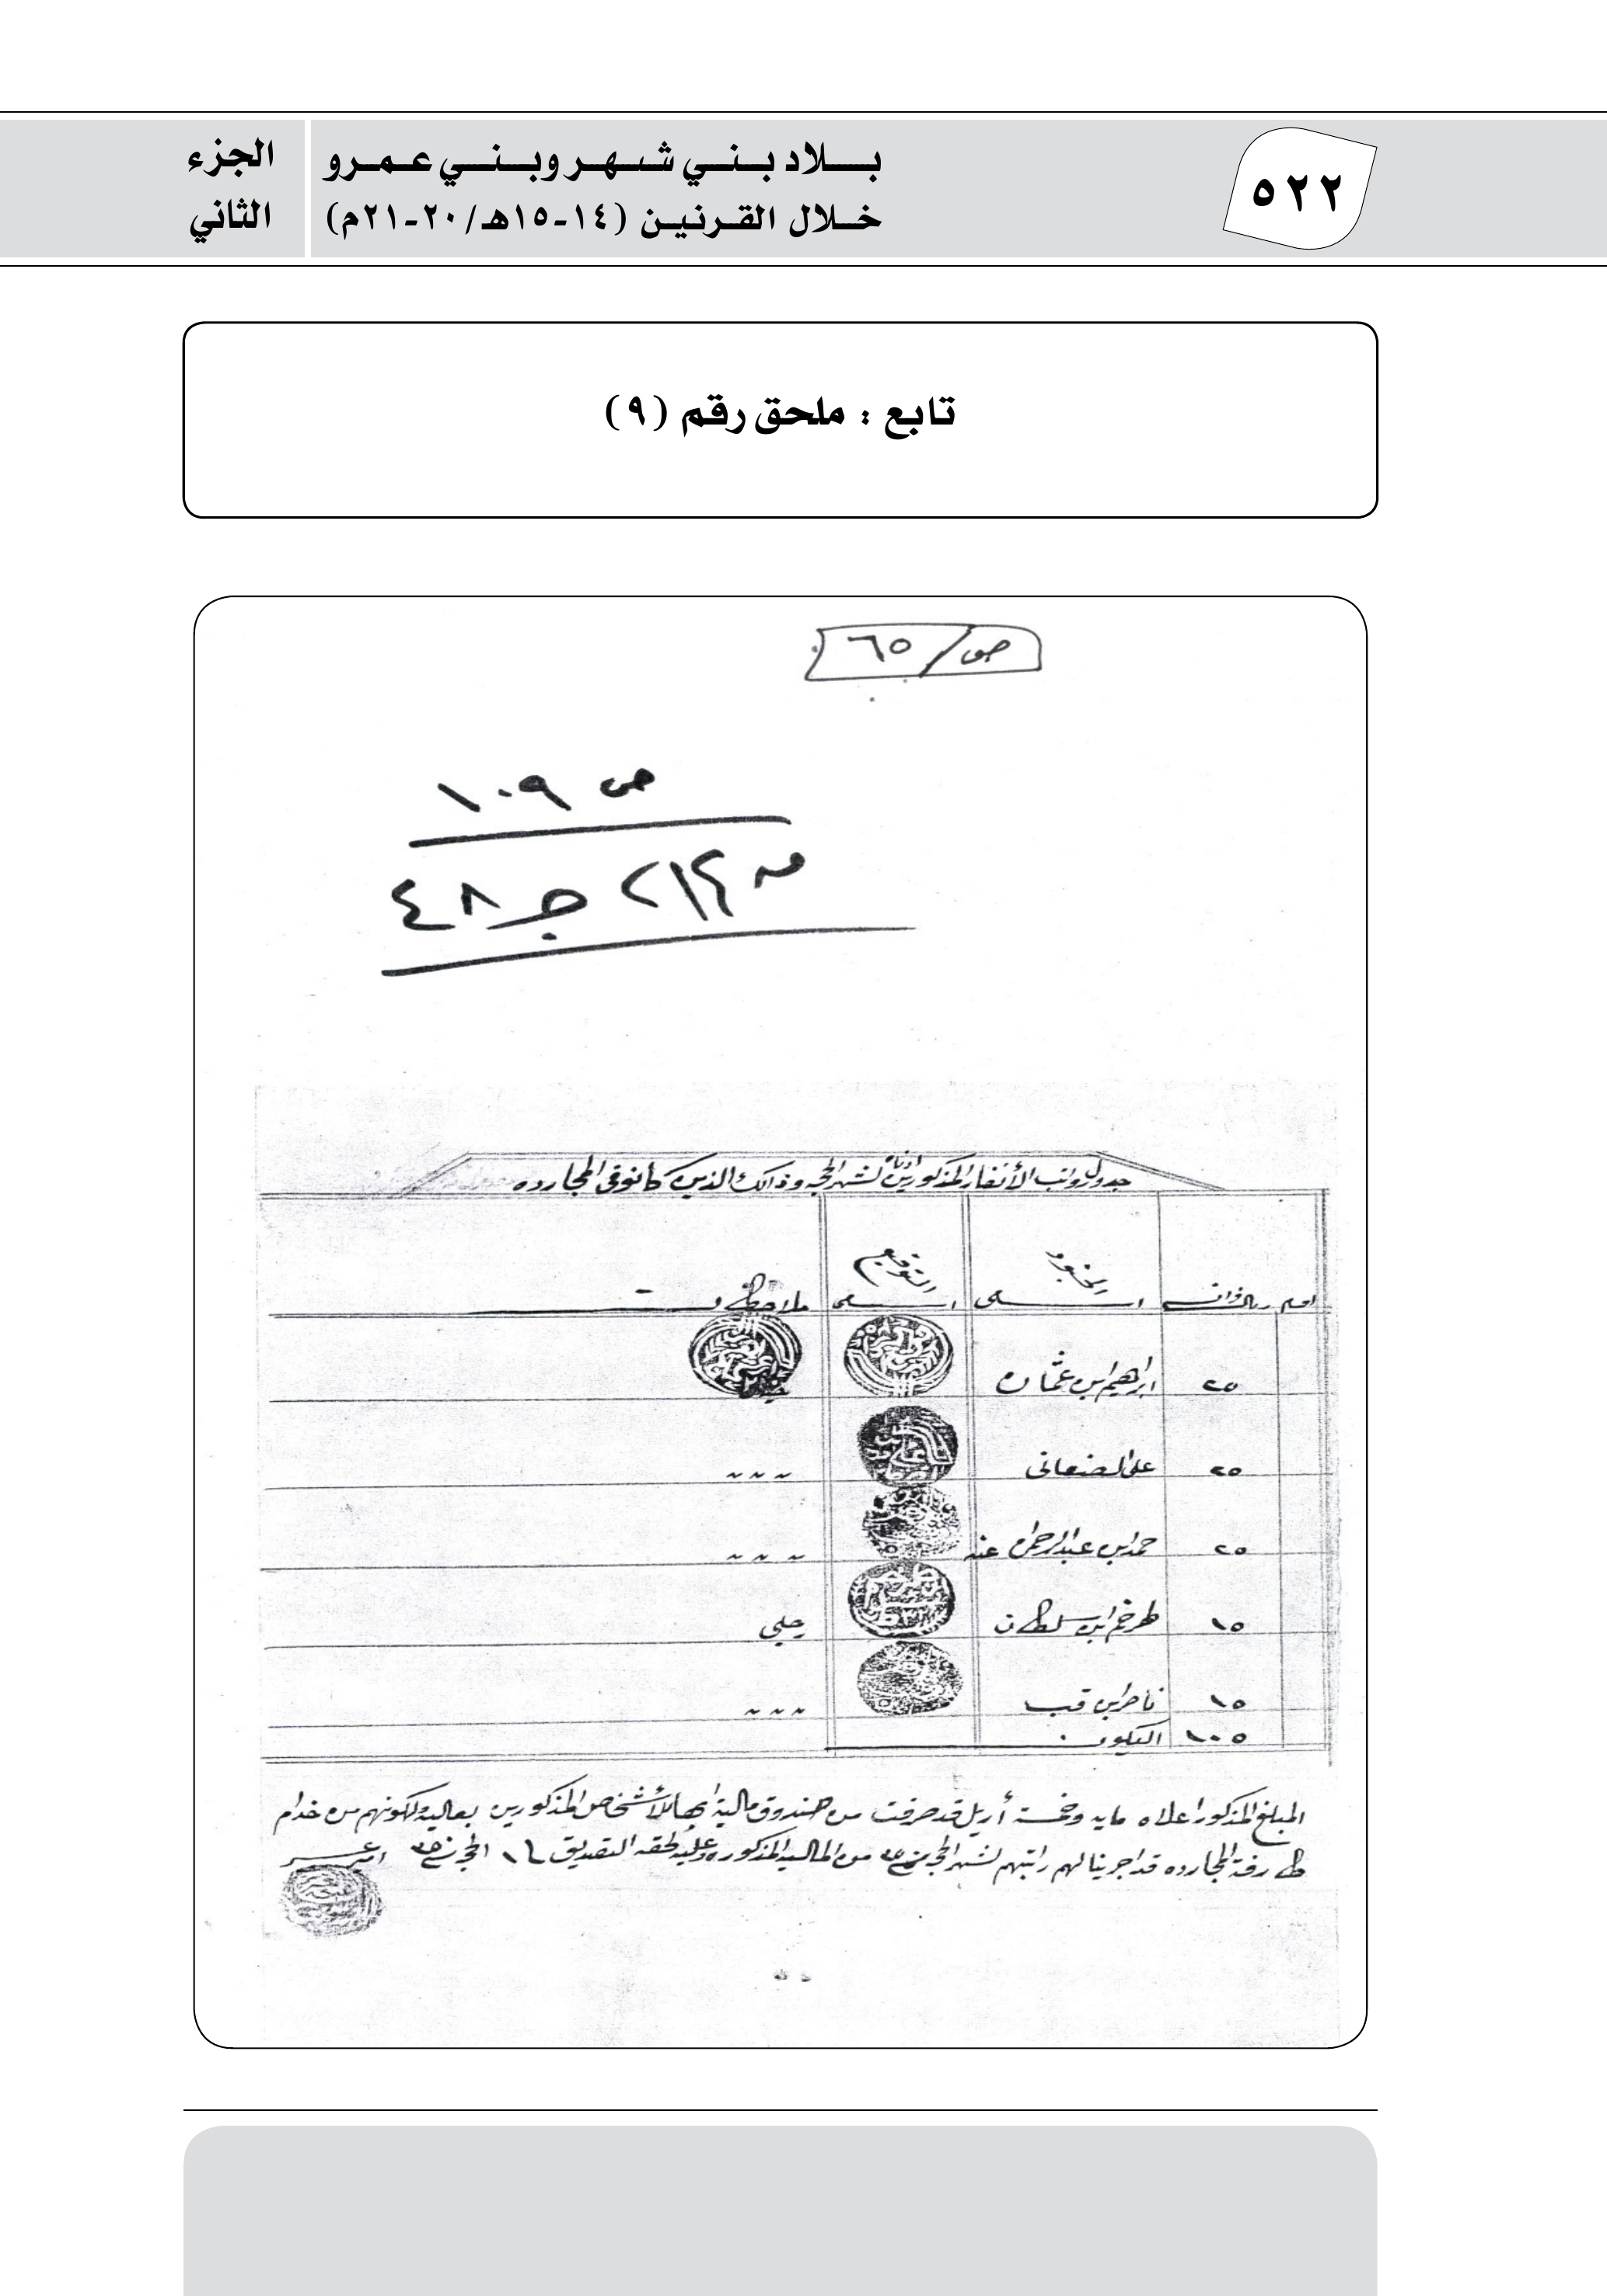 ٥٢٢
بلاد بني شهر وبني عمرو
خلال القرنين (١٤-١٥هـ/٢٠-٢١م)
الجزء
الثاني
تابع : ملحق رقم (٩)
ص/ ٦٥
ص ١٠٩
جـ ٤٨
جدول رواتب الأنفار المذكورين ادناه لشهر الحجه وذالك الذين كانوفي المجارده
التوقيع ملاحظات
٢٥ ابراهيم ابن عثمان
٢٥ علي الصنعاني " " "
٢٥ حمد ابن عبدالرحمن عنه " " "
١٥ طرخم ابن سلطان
١٥ ناصر ابن قب " " "
١٠٥ اليكون
المبلغ المذكور اعلاه مايه وخمسة أريل قد صرفت من صندوق مالية ابها للأشخاص المذكورين بعاليه ولكونهم من خدام
طارفة المجارده قد اجرينا لهم راتبهم لشهر الحجه من الماليه المذكوره وعليه لحقه التصديق ١٦ الحجه امير عسير